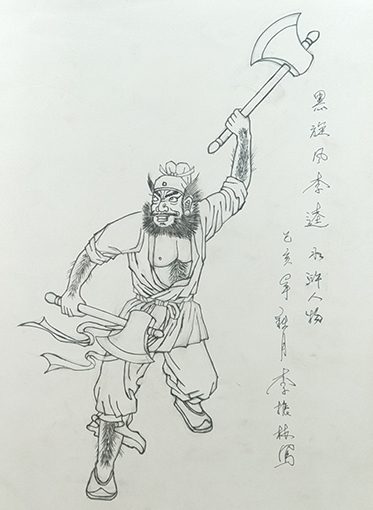 黑旋风李逵 水浒人物
己亥年秋月李培林写